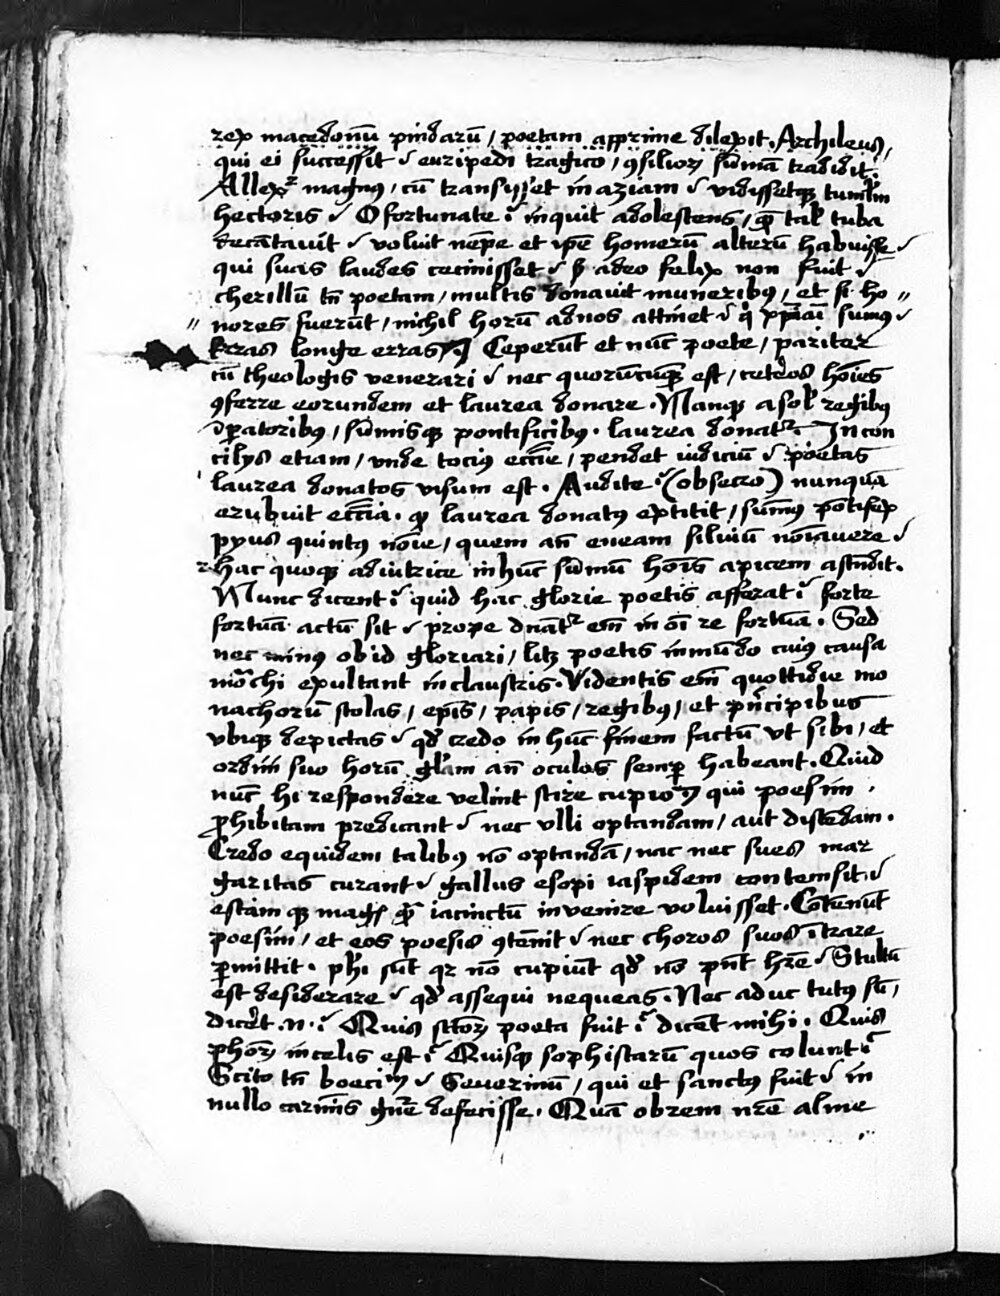 rex macedonū pindarū / poetam apprime dilexit. Archileus,
qui ei successit / euripedi tragico / ꝯsilioꝝ sūmā tradidit.
Allexr magnꝰ / cū transijsset in aziam / vidissetqꝫ tumlm
hectoris / O fortunate / inquit adolescens / qm̄ talꝭ tuba
decātavit / voluit nēpe et ip̄e homerū alterū habuisse /
qui suas laudes cecinisset / ꝫ adeo felix non fuit /
cherillū tn̄ poetam / multis donavit muneribꝰ / et si ho〃
〃 nores fuerūt / nichil horū ad nos attinet / qͥ pp̄iāi sumus /
Erras longe erras. Ceperūt et nūc poete / pariter
cū theologis venerari / nec quorūcūqꝫ est / ceteros hoīes
ꝯferre eorundem et laurea donare. Namqꝫ a solꝭ regibꝰ
īꝑatoribꝰ / sūmisqꝫ pontificibꝰ. laurea donatr. In con
cilijs etiam / unde tocius ecc̄īe / pendet iudiciū / poetas
laurea donatos visum est. Audite (obsecro) nunquā
erubuit ecc̄īa. qꝫ laurea donatꝰ extitit / sūmꝰ pōtifex
pyus quintꝰ noīe / quem an̄ eneam silviū noīavere /
hac quoqꝫ adiutrice in hūc sūmū hoīs apicem ascēdit.
Nunc dicent quid hac glorie poetis afferat forte
fortunā actū sit / prope dnātr em̄ in oī re fortuna. Sed
nec minꝰ ob id gloriari / licꝫ poetis in mūdo cuius causa
mōchi exultant in claustris. Videntis em̄ quottidie mo
nachorū stolas / ep̄is / papis / regibꝰ / et pn̄cipibus
ubiqꝫ depictas / qd̄ credo in hūc finem factū ut sibi / et
ordini suo horū glam an̄ oculos semꝑ habeant. Quid
nūc hi respondere velint scire cupio qui poesim
ꝓhibitam predicant / nec ulli optandam / aut discēdam.
Credo equidem talibꝰ nō optandā / nac nec sues mar
garitas curant / gallus esopi iaspidem contemsit /
escam qꝫ magꝭ qm̄ iacinctū invenire voluisset. Cōtēnūt
poesim / et eos poesis ꝯtēnit / nec choros suos ītrare
ꝑmittit. phī sūt qr nō cupiūt qd̄ nō pn̄t hr̄e / Stultū
est desiderare / qd̄ assequi nequeas. Nec aduc tutꝰ sū,
dicet .n. Quis sctoꝝ poeta fuit dicēt mihi. Quis
phoꝝ in celis est Quisqꝫ sophistarū quos colunt
Scito tn̄ boeciū / Severinū / qui et sanctꝰ fuit / in
nullo carmīs gn̄e defecisse. Quā obrem nr̄e alme